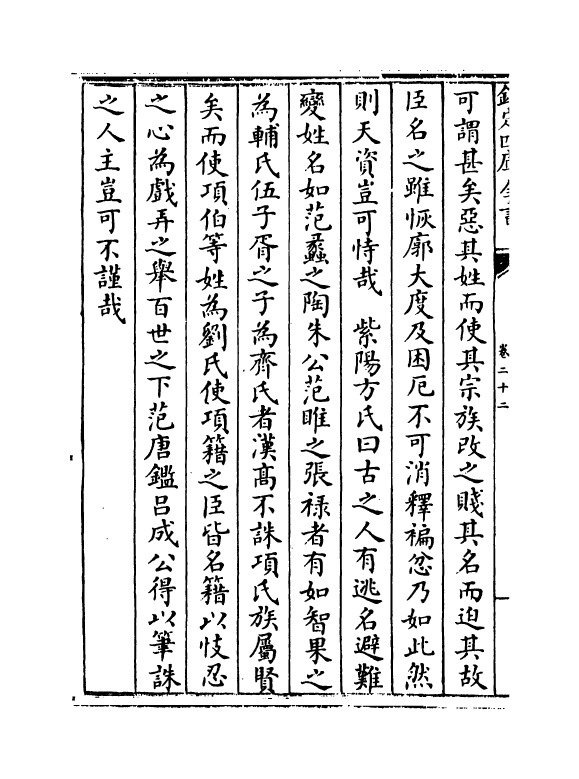 欽定四庫全書
卷二十二
可謂甚矣惡其姓而使其宗族改之賤其名而迫其故
臣名之雖恢廓大度及困厄不可消釋褊忿乃如此然
則天資豈可恃哉　紫陽方氏曰古之人有逃名避難
變姓名如范蠡之陶朱公范睢之張禄者有如智果之
為輔氏伍子胥之子為齊氏者漢髙不誅項氏族屬賢
矣而使項伯等姓為劉氏使項籍之臣皆名籍以忮忍
之心為戲弄之舉百世之下范唐鑑吕成公得以筆誅
之人主豈可不謹哉